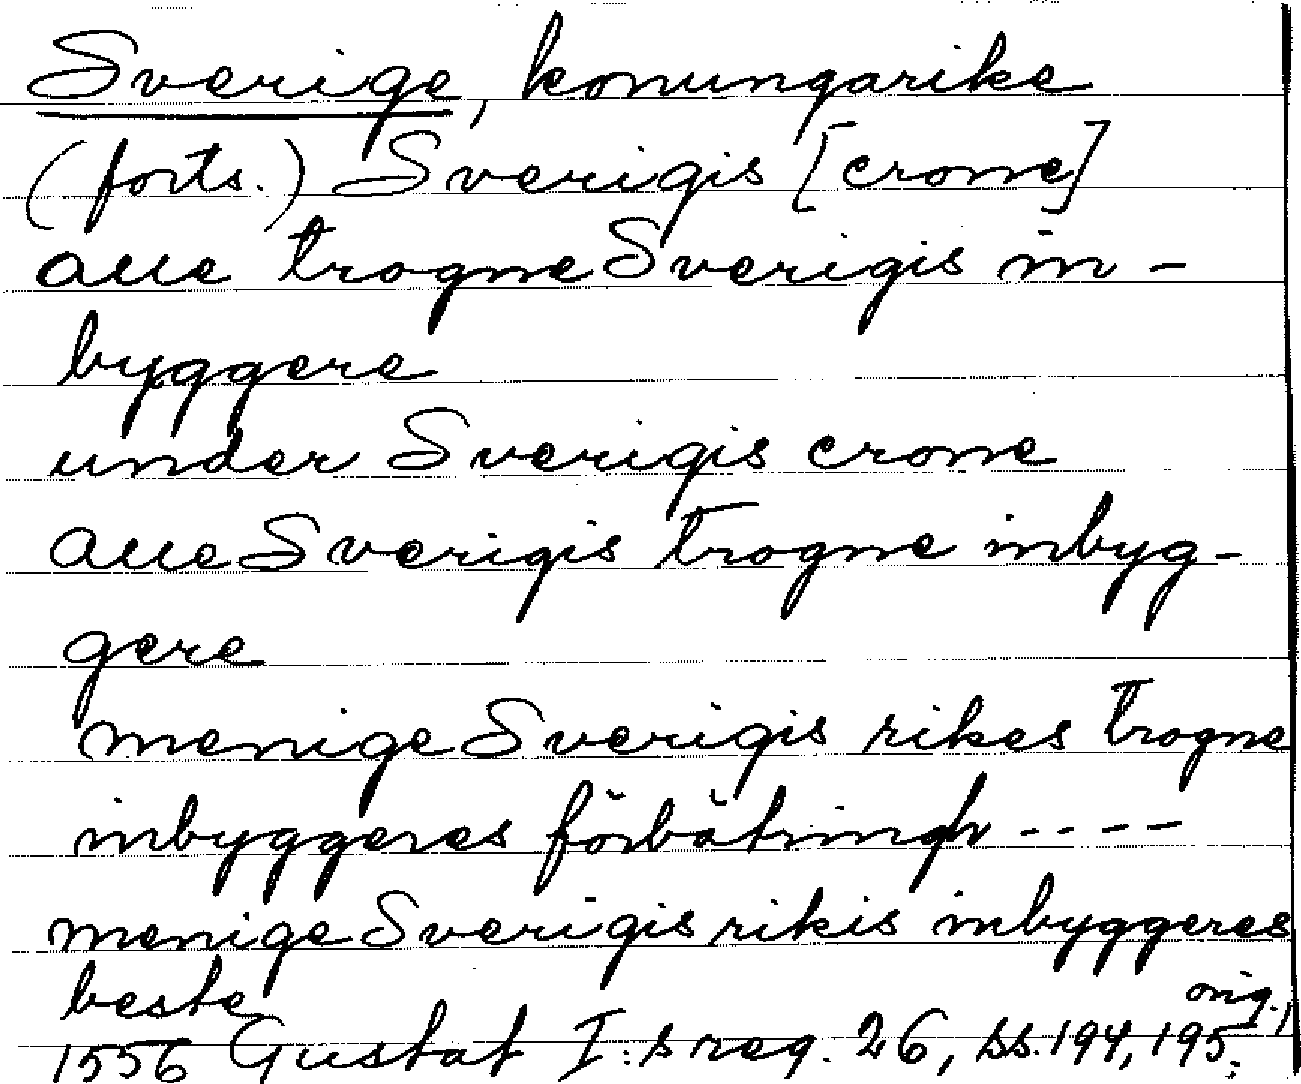 Sverige, konungarike
(forts.) Sverigis [crone]
alle trogne Sverigis in-
byggere
under Sverigis crone
alle Sverigis trogne inbyg-
gere
menige Sverigis rikes trogne
inbyggeres förbätringh ----
menige Sverigis rikis inbyggeres
beste
orig.,
1556 Gustaf I:s reg. 26, ss. 194, 195;